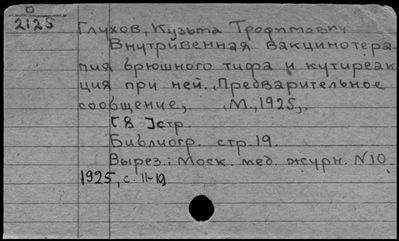 0
2125
Глухов, Кузьма Трофимович
Внутривенная вакцинотера-
пия брюшного тифа и кутиреак-
ция при ней. Предварительное
сообщение, М., 1925,
[8] стр.
Библиогр. стр. 19.
Вырез.: Моск. мед. журн. N10.
1925, с. 11-19